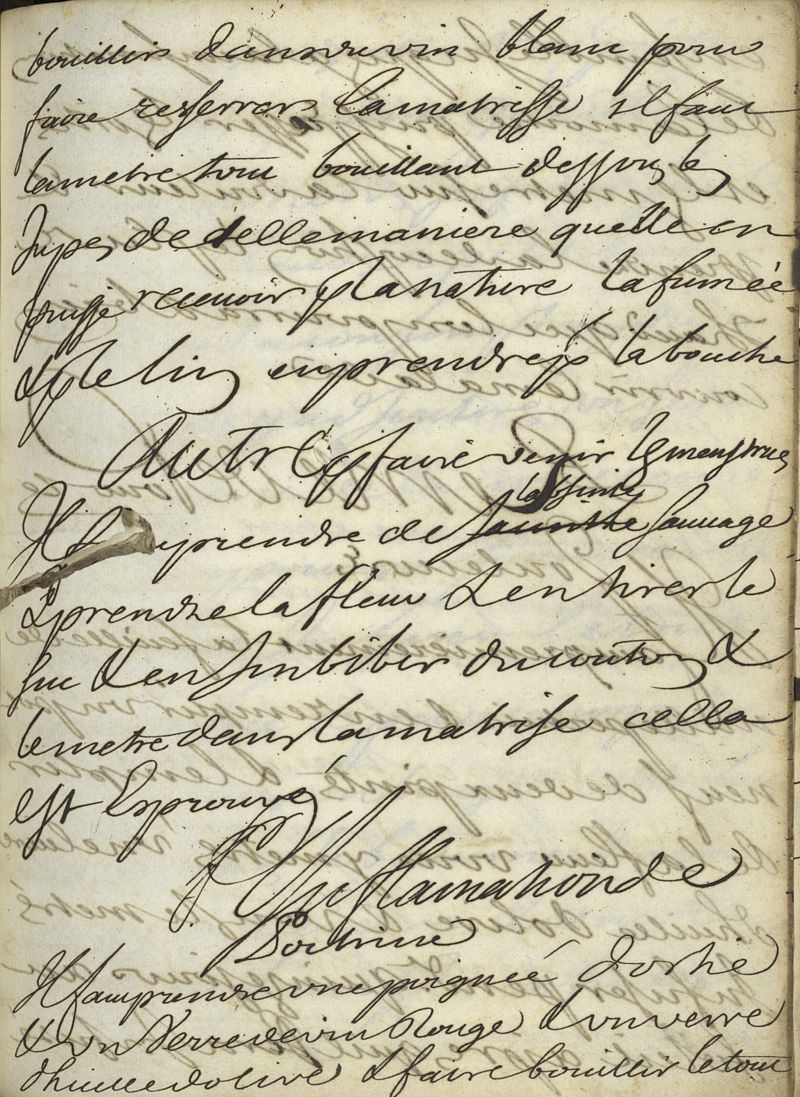 bouillir dans du vin blanc pour
faire resserrer lamatrisse il faut
lametre tout bouillant dessous les
Jupes de tellemaniere quelle en
puisse recevoir p la nature la fumée
& p le lin enprendre p la bouche
Autre p faire venir les menstrues
Il prendre de sauvage
& prendre la fleur & en tirer le
suc & en Jmbiber du couton &
lemetre dans la matrise cella
est Esprouvé
P. Jnflamationde
Poitrine
Il fauprendre vne poigneé dortie
& vn Verre de vin Rouge & vn verre
dhuille dolive & faire bouillir le tout